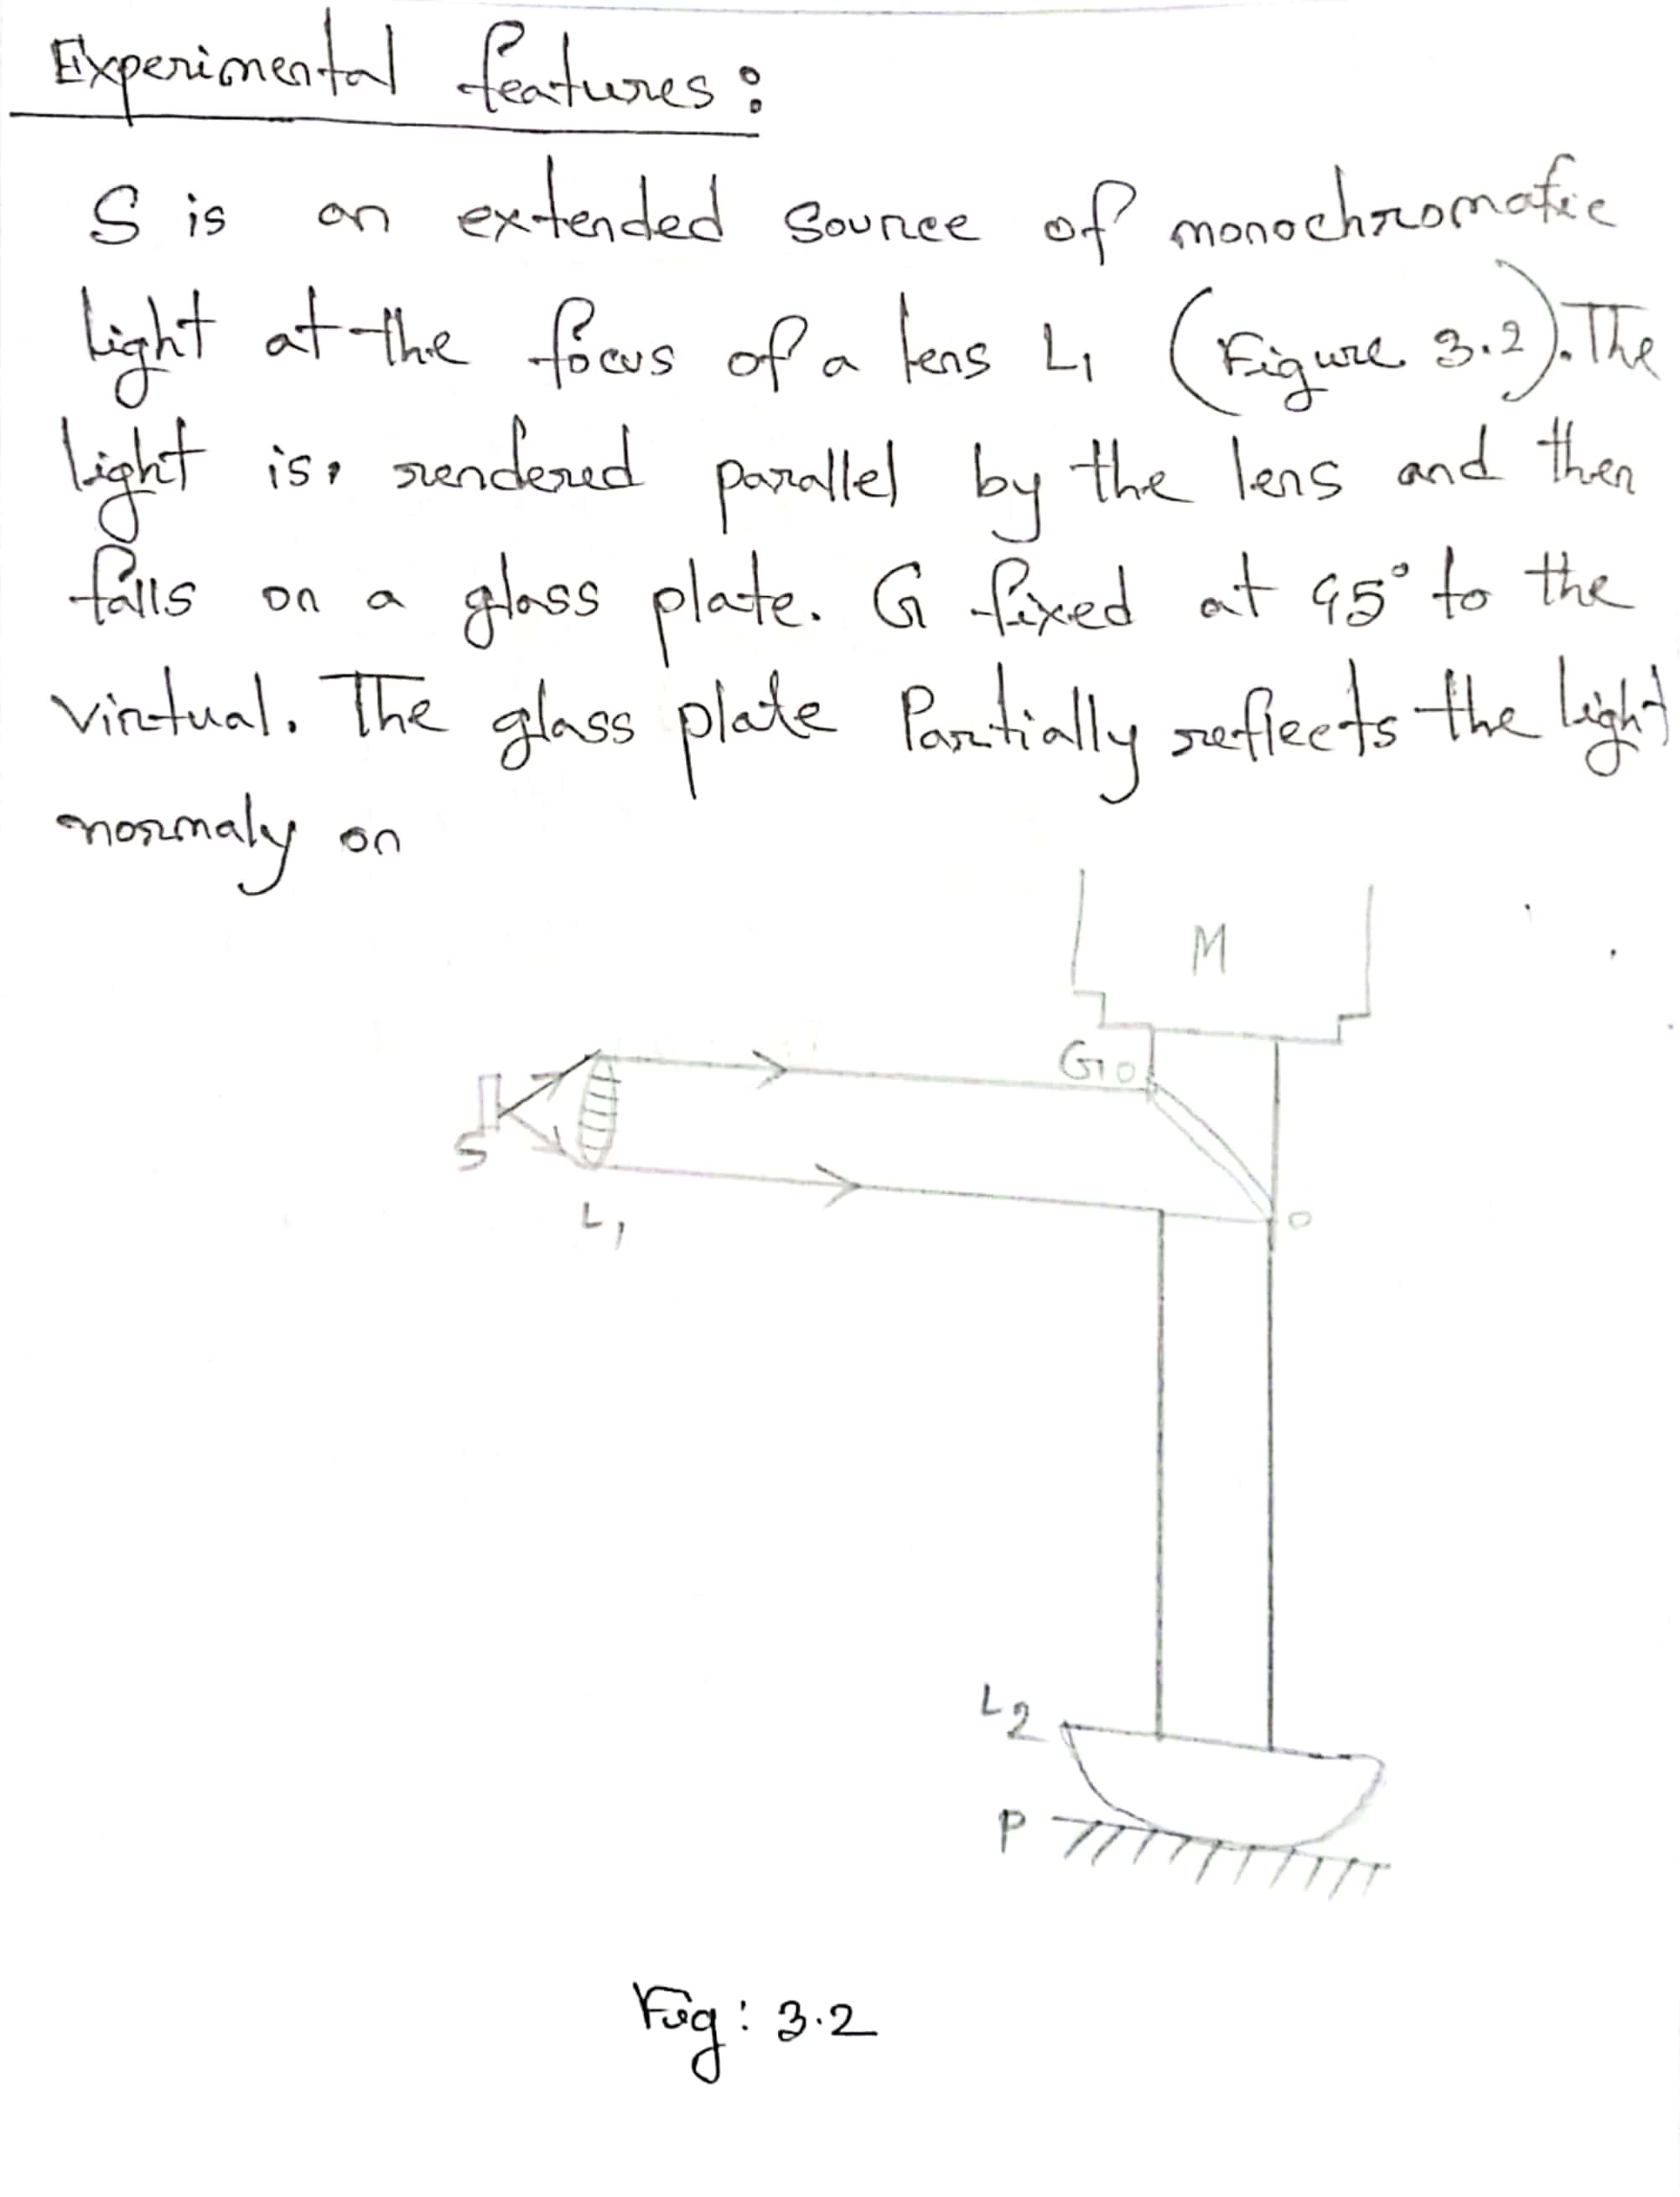 Experimental features:
S is an extended source of monochromatic
light at the focus of a lens L1 (Figure 3.2). The
light is, rendered parallel by the lens and then
falls on a glass plate. G fixed at 45° to the
virtual. The glass plate Partially reflects the light
normaly on
M
G
S
L1
L2
P
Fig: 3.2